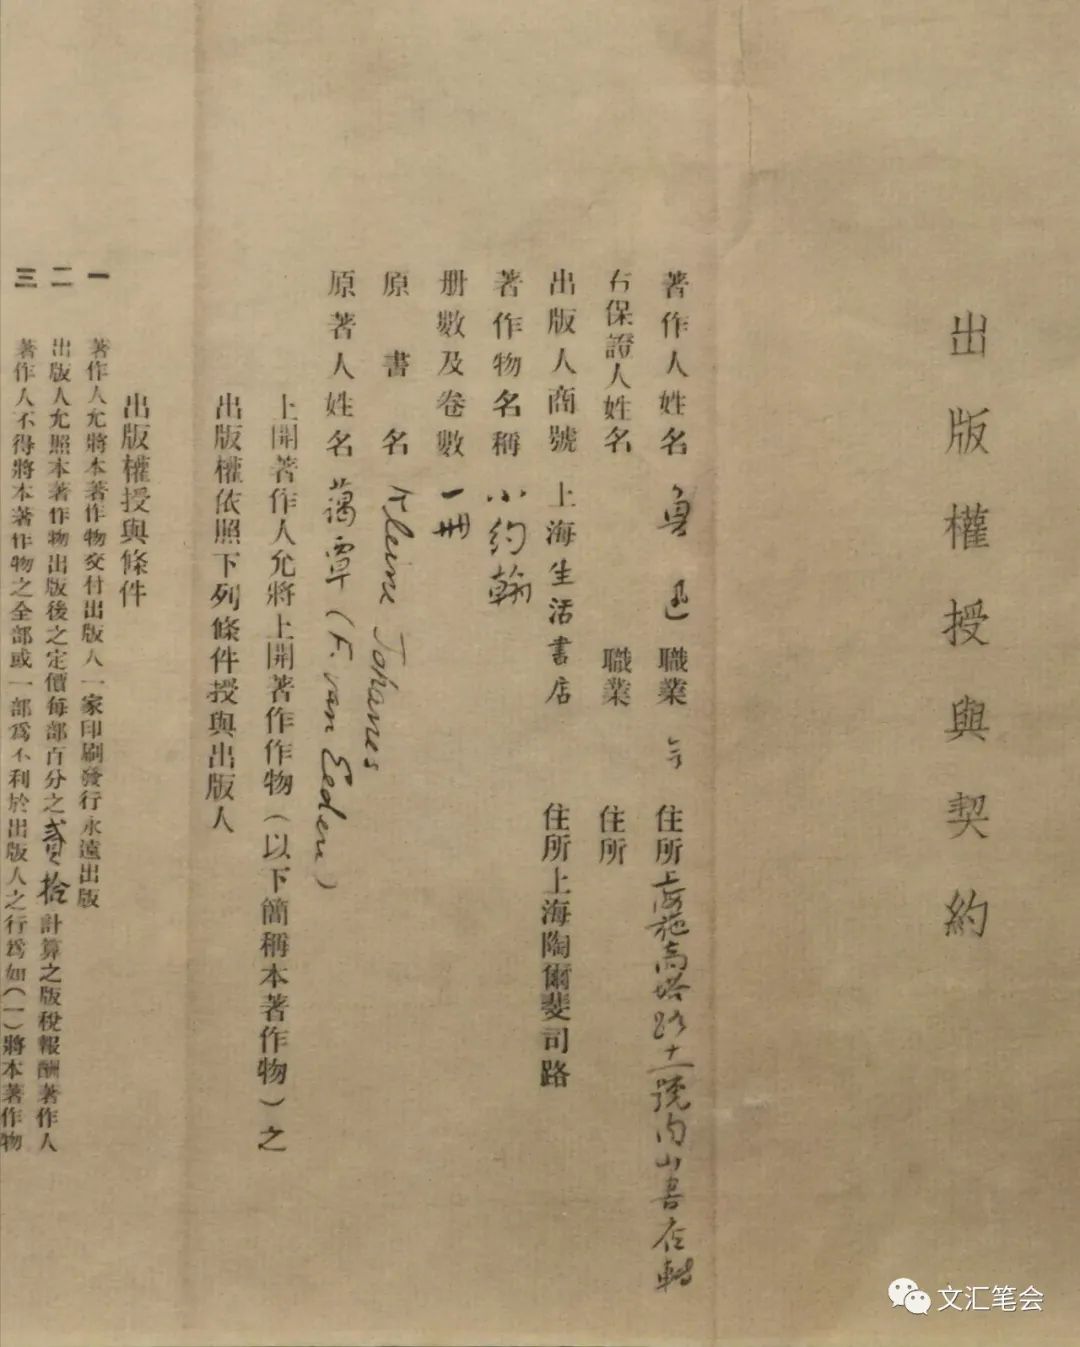 出版權授與契約
著作人姓名 魯迅 職業 住所 上海施高塔路十一號內山書店轉
右保證人姓名 職業 住所
出版人商號 上海生活書店 住所 上海陶爾斐司路
著作物名稱 小約翰
册數及卷數 一冊
原書名 Kleine Johanes
原著人姓名 藹覃（F. van Eeden）
上開著作人允將上開著作作物（以下簡稱本著作物）之
出版權依照下列條件授與出版人
出版權授與條件
一 著作人允將本著作物交付出版人一家印刷發行永遠出版
二 出版人允照本著作物出版後之定價每部百分之貳拾計算之版稅報酬著作人
三 著作人不得將本著作物之全部或一部爲不利於出版人之行爲如（一）將本著作物
文汇笔会